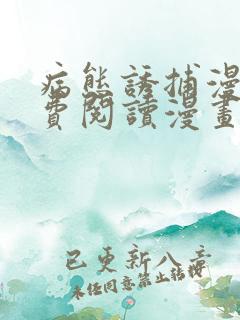 病態誘捕漫
費閱讀漫畫
已更新八章
未任同意禁止转授